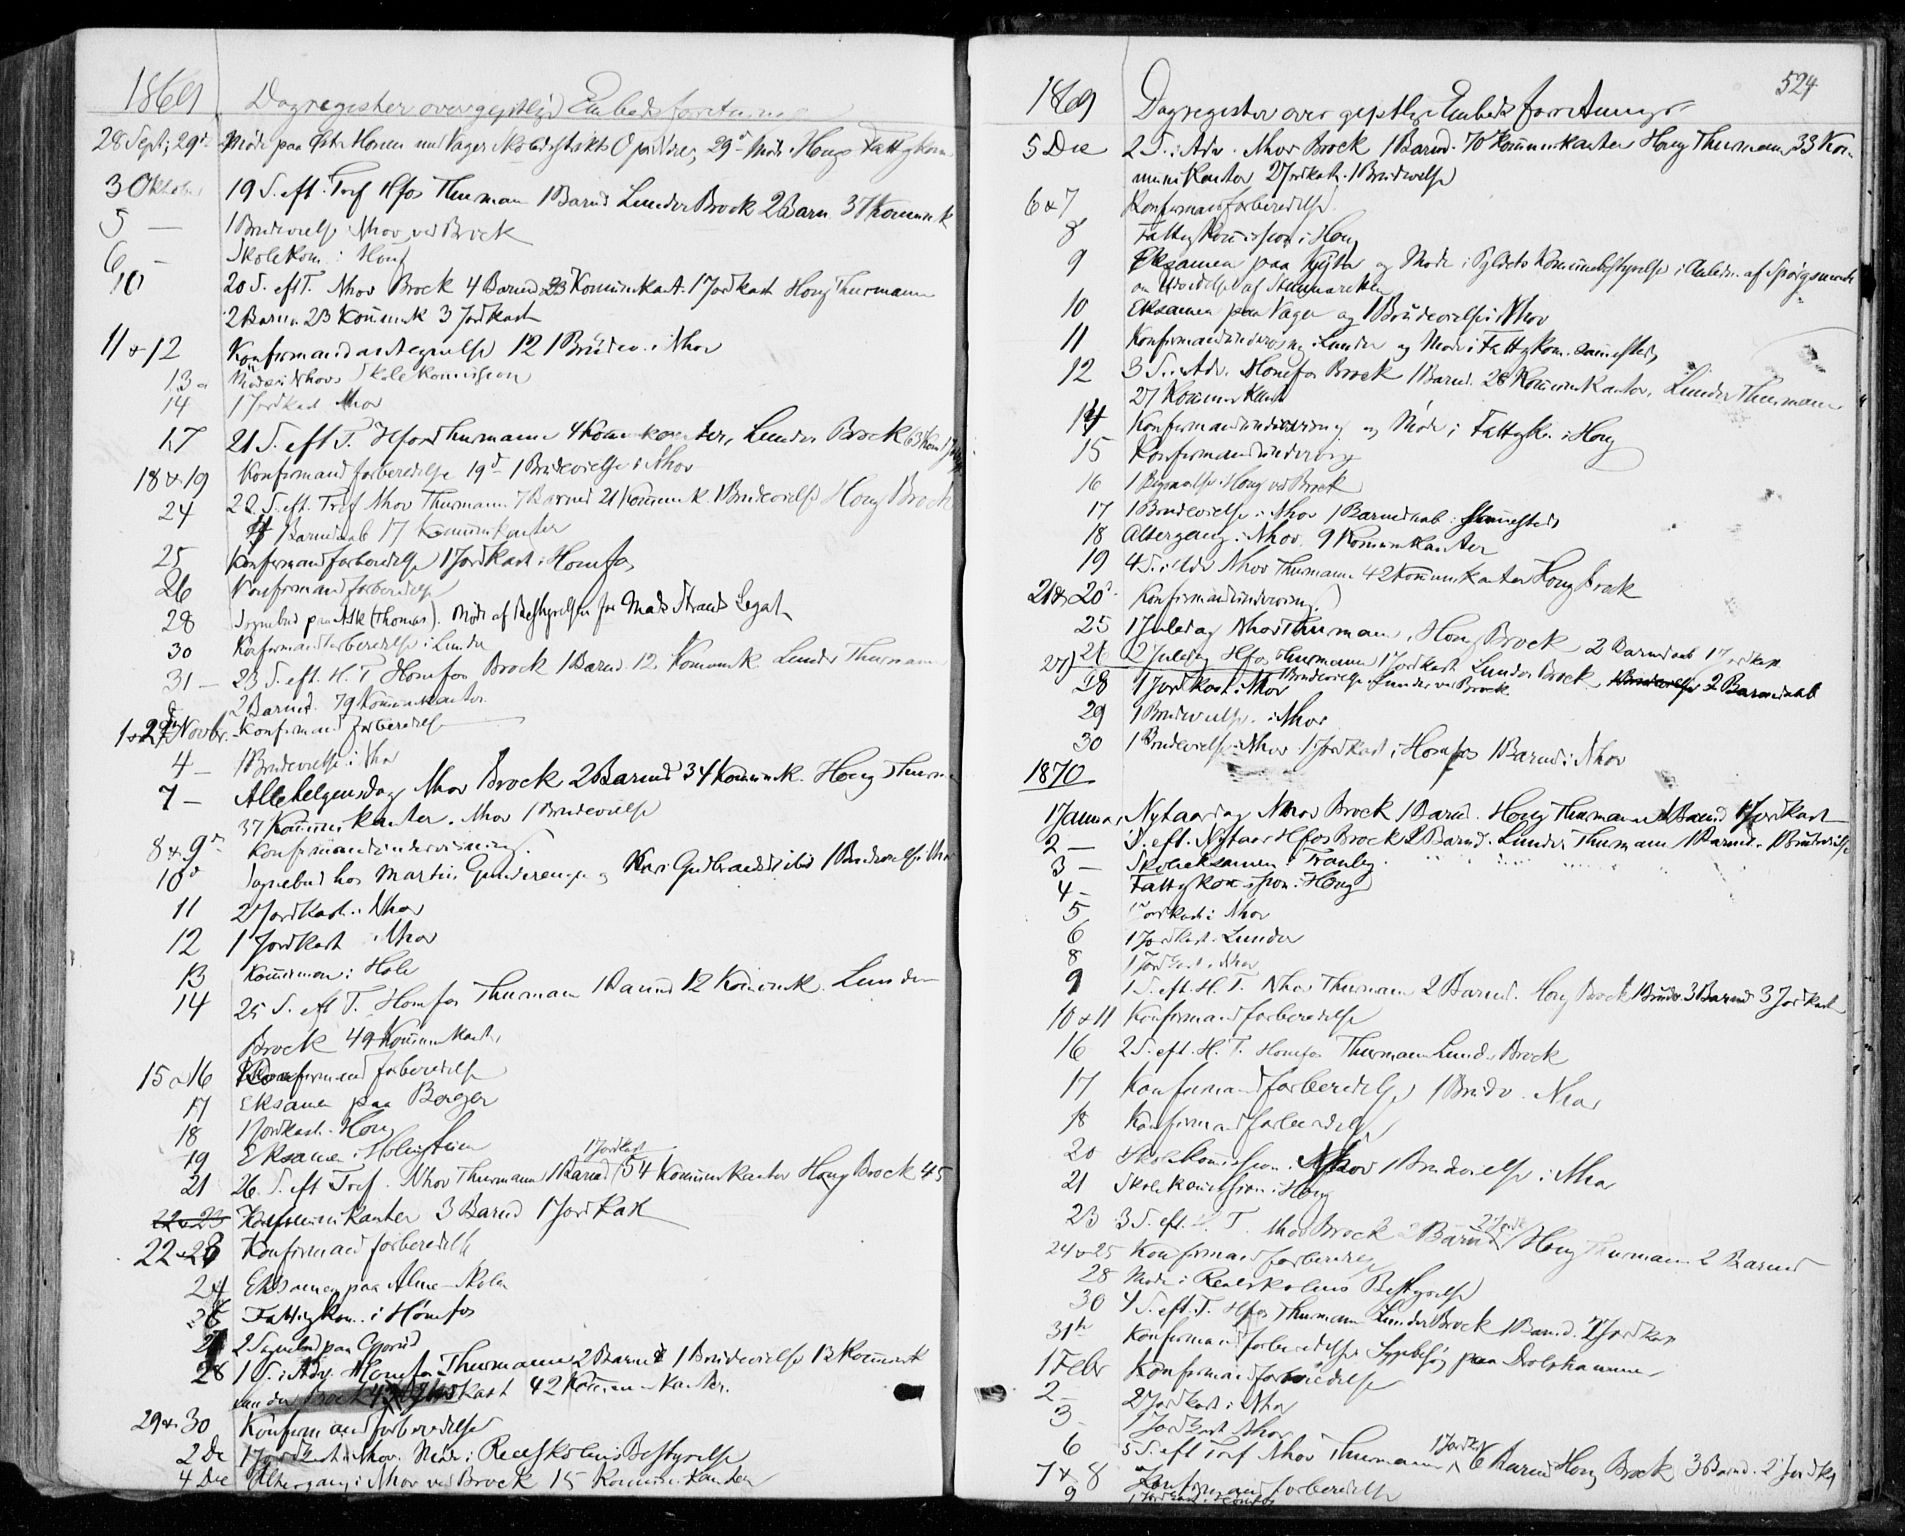 1869 Dagregister over geistlige Embedsforretninger
28 Sept; 29d Møde paa Hønen 29d Møde i Hougs Fattigkom
3 Oktober 19 S. eft. Tref Hfos Thurmann 1 Barnd Lunder Brock 2 Barn. 37 Kommunk
5 — 1 Brudevielse Nhov ved Brock
6 — Skolekom. i Houg
10 20 S. eft T. Nhov Brock 4 Barnd 23 Kommunikant. 1 Jordkast Houg Thurmann
2 Barnd. 23 Kommunk 3 Jordkast
11 & 12 Konfirmandantegnelse 12 1 Brudev. i Nhov
13 Møde i Nhovs Skolekommission
14 1 Jordkast Nhov
17 21 S. eft T. Hfos Thurmann 4 Kommunikanter, Lunder Brock 63 Kom
18 & 19 Konfirmandforberedelse 19d 1 Brudevielse i Nhov
24 22 S. eft. Tref Nhov Thurmann 7 Barnd 21 Kommunk. 1 Brudevielse Houg Brock
1 Barnedaab 17 Kommunikanter
25 Konfirmandforberedelse 1 Jordkast i Hønefos
26 Konfirmandforberedelse
28 Sognebud paa Ask (Thomas). Møde af Bestyrelsen for Mads Strands Legat
30 Konfirmandforberedelse i Lunder
31 — 23 S. eft. H. T Hønefos Brock 1 Barnd. 12 Kommunk. Lunder Thurmann
2 Barnd. 79 Kommunikanter
1 & 2 Novbr. Konfirmandforberedelse
4 — 1 Brudevielse i Nhov
7 — Allehelgensdag Nhov Brock 2 Barnd 34 Kommunk. Houg Thurm
37 Kommunikanter. Nhov 1 Brudevielse
8 & 9d Konfirmandundervisning.
10d Sognebud hos Martin Gunderengen og Kari Gudbrandsd ibid 1 Brudevielse i Nhov
11 2 Jordkast i Nhov
12 1 Jordkast Nhov
13 Kommission i Hole
14 25 S. eft T. Hønefos Thurmann 1 Barnd 12 Kommunk. Lunder
Brock 49 Kommunikant.
15 & 16 Konfirmandforberedelse
17 Eksamen paa Bager
18 1 Jordkast Houg
19 Eksamen i
21 26 S. eft Tref. Nhov Thurmann 1 Barnd 1 Jordkast 54 Kommunikanter Houg Brock 45
Kommunikanter 3 Barnd 1 Jordkast
22 & 23 Konfirmandforberedelse
24 Eksamen paa Alme Skole
26 Fattigkom. i Hønefos
27 2 Sognebud paa
28 1 S. i Adv. Hønefos Thurmann 2 Barnd 1 Brudevielse 13 Kommunk
Lunder Brock Jordkast 42 Kommunikanter.
29 & 30 Konfirmandforberedelse
2 De 1 Jordkast i Nhov. Møde i Realskolens Bestyrelse
4 Dec Altergang i Nhov ved Brock 15 Kommunikanter
524
1869 Dagregister over geistlige Embedsforretninger
5 Dec 2 S. i Adv. Nhov Brock 1 Barnd. 70 Kommunikanter Houg Thurmann 33 Kom
munikanter 2 Jordkast. 1 Brudevielse
6 & 7 Konfirmandforberedelse
8 Fattigkommission i Houg
9 Eksamen paa og Møde i Kommunebestyrelse i Anledn. af Spørgsmaal
om Udvidelse af Stemmeretten
10 Eksamen paa Vager og 1 Brudevielse i Nhov
11 Konfirmandundervisning i Lunder og Møde i Fattigkom. sammesteds
12 3 S. i Adv. Hønefos Brock 1 Barnd. 28 Kommunikanter, Lunder Thurmann
27 Kommunikant
14 Konfirmandundervisning og Møde i Fattigk. i Houg
15 Konfirmandundervisning
16 1 Begravelse i Houg ved Brock
17 1 Brudevielse i Nhov 1 Barnedaab sammesteds
18 Altergang i Nhov 9 Kommunikanter
19 4 S. i Adv Nhov Thurmann 42 Kommunikanter Houg Brock
21 & 20d Konfirmandundervisning
25 1 Juledag Nhov Thurmann, Houg Brock 2 Barnedaab 1 Jordkast
26 2 Juledag Hfos Thurmann 1 Jordkast Lunder Brock 2 Barnedaab
27) 1 Brudevielse Lunder ved Brock
28 1 Jordkast i Nhov
29 1 Brudevielse i Nhov
30 1 Brudevielse i Nhov 1 Jordkast i Hønefos 1 Barnd i Nhov
1870
1 Januar Nytaarsdag Nhov Brock 1 Barnd. Houg Thurmann 1 Barnd 1 Jordkast
2 — S. eft. Nytaar Hfos Brock 2 Barnd. Lunder Thurmann 1 Barnd. 1 Brudevielse
3 — Skoleeksamen i Tranby
4 — Fattigkommission i Houg
5 1 Jordkast i Nhov
6 1 Jordkast Lunder
8 1 Jordkast i Nhov
9 1 S. eft. H. T. Nhov Thurmann 2 Barnd. Houg Brock 1 Brudev. 3 Barnd 3 Jordkast
10 & 11 Konfirmandforberedelse
16 2 S. eft. H. T. Hønefos Thurmann Lunder Brock
17 Konfirmandforberedelse 1 Brudv. Nhov
18 Konfirmandforberedelse
20 Skolekommission i Nhov 1 Brudevielse i Nhov
21 Skolekommission i Houg
23 3 S. eft. H. T. Nhov Brock 2 Barnd 2 Jordk Houg Thurmann 2 Barnd
24 & 25 Konfirmandforberedelse
28 Møde i Realskolens Bestyrelse
30 4 S. eft. T. Hfos Thurmann Lunder Brock 1 Barnd. 2 Jordkast
31te Konfirmandforberedelse Sygebesøg paa Drolshammer
1 Febr Konfirmandforberedelse
2 — 2 Jordkast i Nhov
3 1 Jordkast Nhov
6 5 S. eft Tref Nhov Thurmann 1 Jordk 6 Barnd Houg Brock 3 Barnd. 2 Jordk
7 & 8 Konfirmandforberedelse
9 1 Jordkast i Hønefos